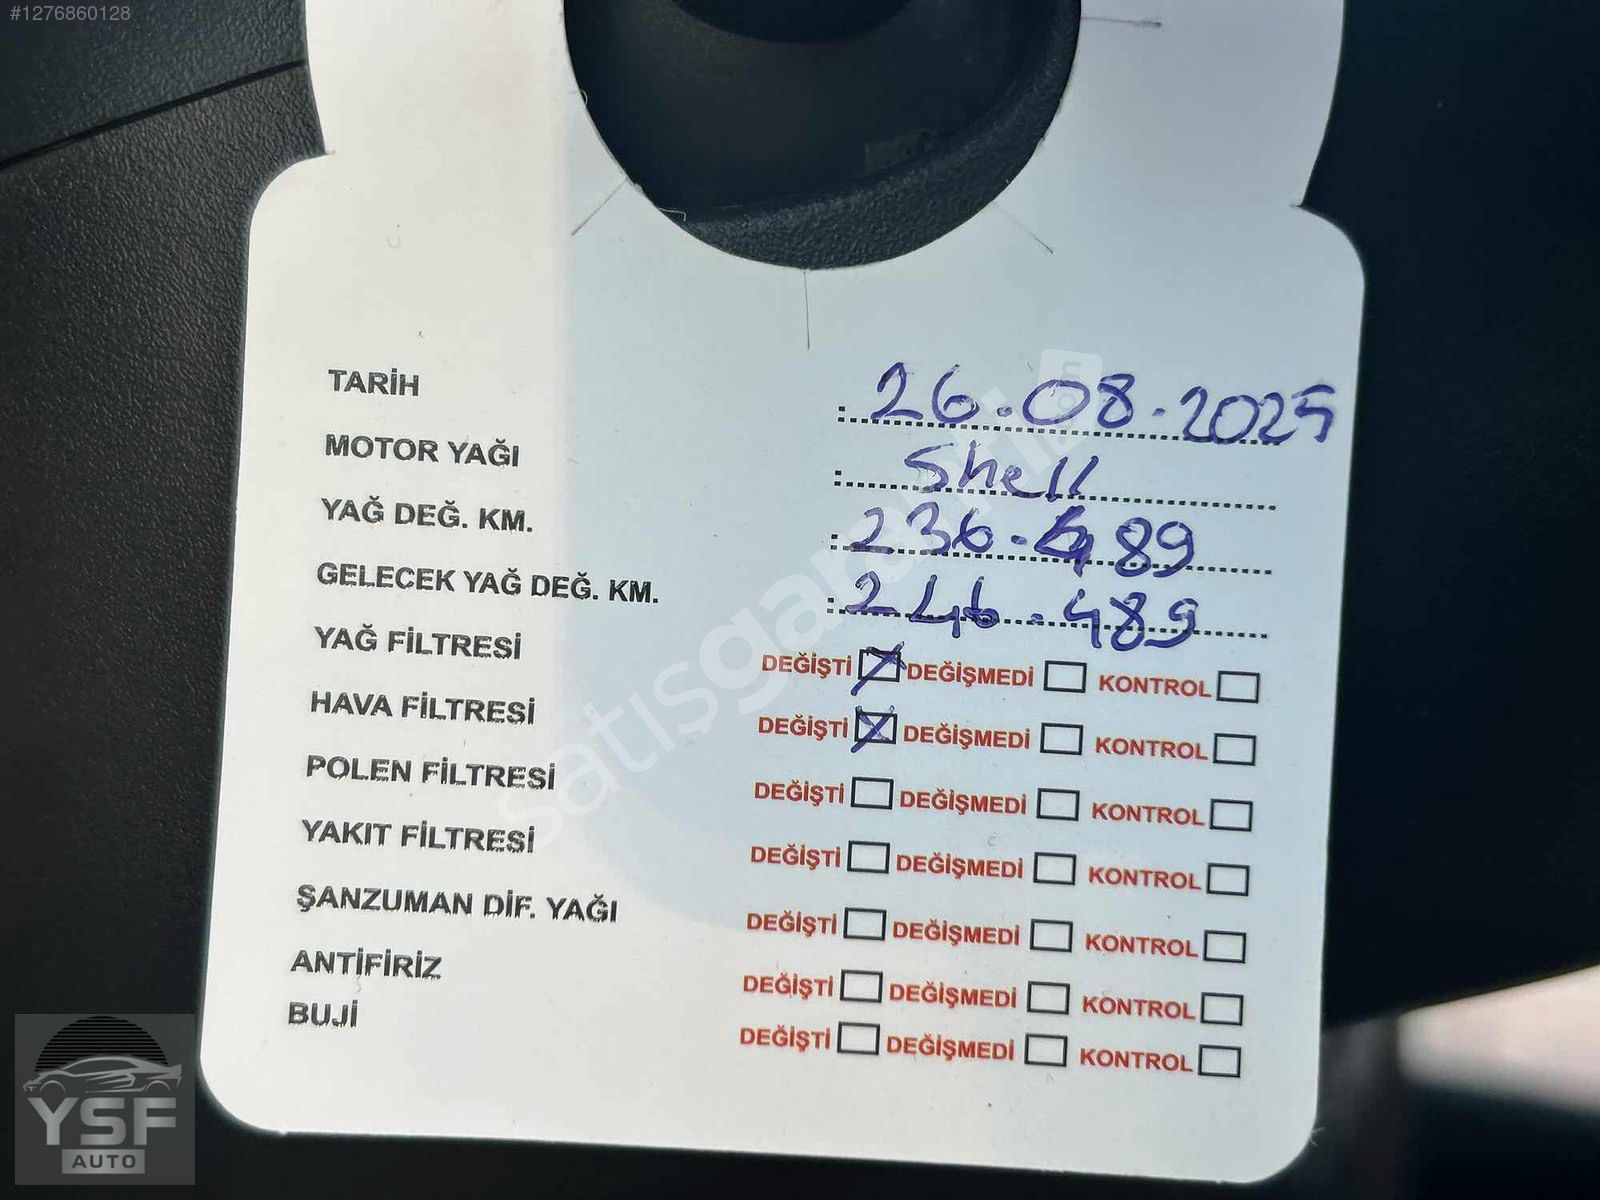 #1276860128
TARİH : 26.08.2025
MOTOR YAĞI : Shell
YAĞ DEĞ. KM. : 236.489
GELECEK YAĞ DEĞ. KM. : 246.489
YAĞ FİLTRESİ DEĞİŞTİ DEĞİŞMEDİ KONTROL
HAVA FİLTRESİ DEĞİŞTİ DEĞİŞMEDİ KONTROL
POLEN FİLTRESİ DEĞİŞTİ DEĞİŞMEDİ KONTROL
YAKIT FİLTRESİ DEĞİŞTİ DEĞİŞMEDİ KONTROL
ŞANZUMAN DİF. YAĞI DEĞİŞTİ DEĞİŞMEDİ KONTROL
ANTİFİRİZ DEĞİŞTİ DEĞİŞMEDİ KONTROL
BUJİ DEĞİŞTİ DEĞİŞMEDİ KONTROL
satışgaraj
YSF
AUTO